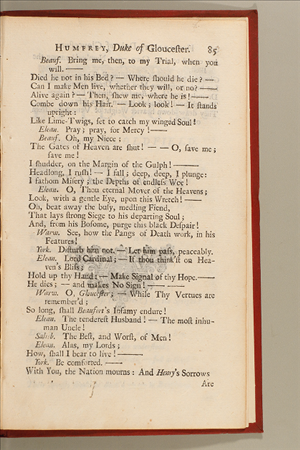 HUMFREY, Duke of Gloucester. 85
Beauf. Bring me, then, to my Trial, when you
will. ——
Died he not in his Bed? — Where should he die? —
Can I make Men live, whether they will, or no? ——
Alive again? — Then, shew me, where he is! ——
Combe down his Hair. — Look; look! — It stands
upright:
Like Lime-Twigs, set to catch my winged Soul!
Elean. Pray; pray, for Mercy! ——
Beauf. Oh, my Niece;
The Gates of Heaven are shut! — — O, save me;
save me!
I shudder, on the Margin of the Gulph! ——
Headlong, I rush! — I fall; deep, deep, I plunge:
I fathom Misery; the Depths of endless Woe!
Elean. O, Thou eternal Mover of the Heavens;
Look, with a gentle Eye, upon this Wretch! ——
Oh, beat away the busy, medling Fiend,
That lays strong Siege to his departing Soul;
And, from his Bosome, purge this black Despair!
Warw. See, how the Pangs of Death work, in his
Features!
York. Disturb him not. — Let him pass, peaceably.
Elean. Lord Cardinal; — If thou think'st on Hea-
ven's Bliss;
Hold up thy Hand: — Make Signal of thy Hope. ——
He dies; — and makes No Sign! ——
Warw. O, Gloucester; — While Thy Vertues are
remember'd;
So long, shall Beaufort's Infamy endure!
Elean. The tenderest Husband! — The most inhu-
man Uncle!
Salisb. The Best, and Worst, of Men!
Elean. Alas, my Lords;
How, shall I bear to live! ——
York. Be comforted. ——
With You, the Nation mourns: And Henry's Sorrows
Are